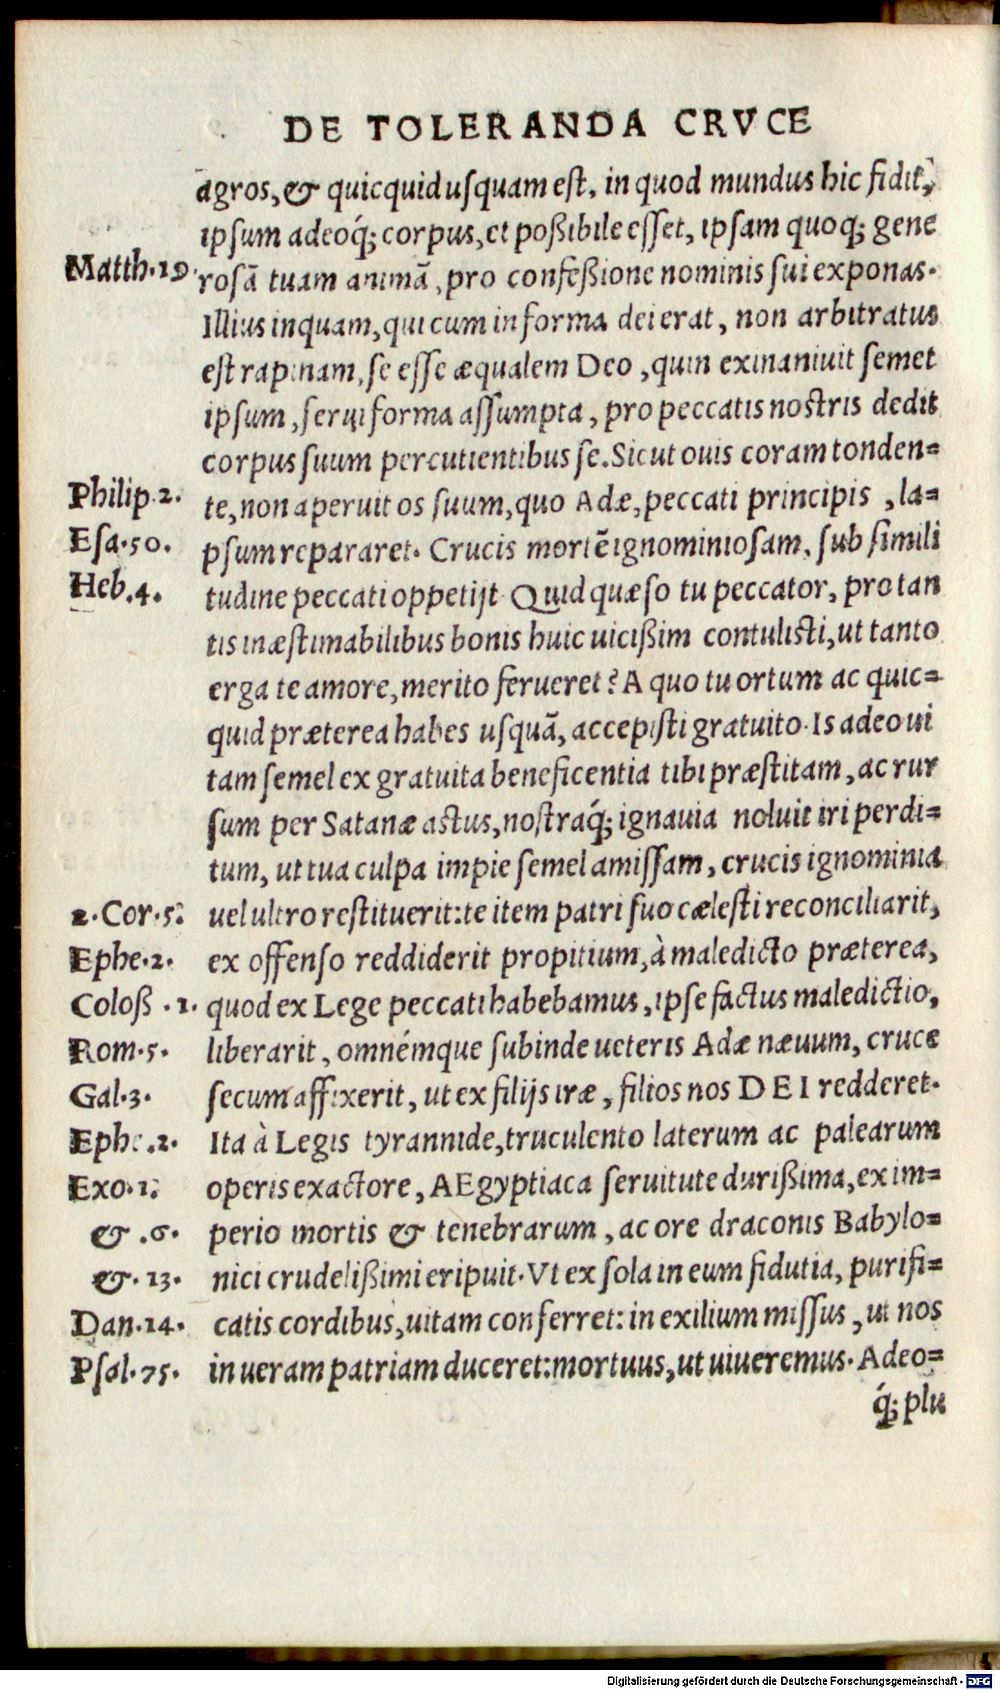 DE TOLERANDA CRVCE
agros, & quicquid usquam est, in quod mundus hic fidit,
ipsum adeoq́; corpus, et poßibile esset, ipsam quoq; gene
Matth.19.
rosã tuam animã, pro confeßione nominis sui exponas.
Illius inquam, qui cum in forma dei erat, non arbitratus
est rapinam, se esse æqualem Deo, quin exinaniuit semet
ipsum, serui forma assumpta, pro peccatis nostris dedit
corpus suum percutientibus se. Sicut ouis coram tonden=
Philip.2.
te, non aperuit os suum, quo Adæ, peccati principis, la=
Esa.50.
psum repararet. Crucis mortẽ ignominiosam, sub simili
Heb.4.
tudine peccati oppetijt. Quid quæso tu peccator, pro tan
tis inæstimabilibus bonis huic uicißim contulisti, ut tanto
erga te amore, merito ferueret? A quo tu ortum ac quic=
quid præterea habes usquã, accepisti gratuito. Is adeo ui
tam semel ex gratuita beneficentia tibi præstitam, ac rur
sum per Satanæ astus, nostraq́; ignauia noluit iri perdi=
tum, ut tua culpa impie semel amissam, crucis ignominia
2.Cor.5.
uel ultro restituerit: te item patri suo cælesti reconciliarit,
Ephe.2.
ex offenso reddiderit propitium, à maledicto præterea,
Coloß.1.
quod ex Lege peccati habebamus, ipse factus maledictio,
Rom.5.
liberarit, omnémque subinde ueteris Adæ næuum, cruce
Gal.3.
secum affixerit, ut ex filijs iræ, filios nos DEI redderet.
Ephe.2.
Ita à Legis tyrannide, truculento laterum ac palearum
Exo.1.
operis exactore, AEgyptiaca seruitute durißima, ex im=
& .6.
perio mortis & tenebrarum, ac ore draconis Babylo=
&.13.
nici crudelißimi eripuit. Vt ex sola in eum fidutia, purifi=
Dan.14.
catis cordibus, uitam conferret: in exilium missus, ut nos
Psal.75.
in ueram patriam duceret: mortuus, ut uiueremus. Adeo=
q́; plu
Digitalisierung gefördert durch die Deutsche Forschungsgemeinschaft - DFG